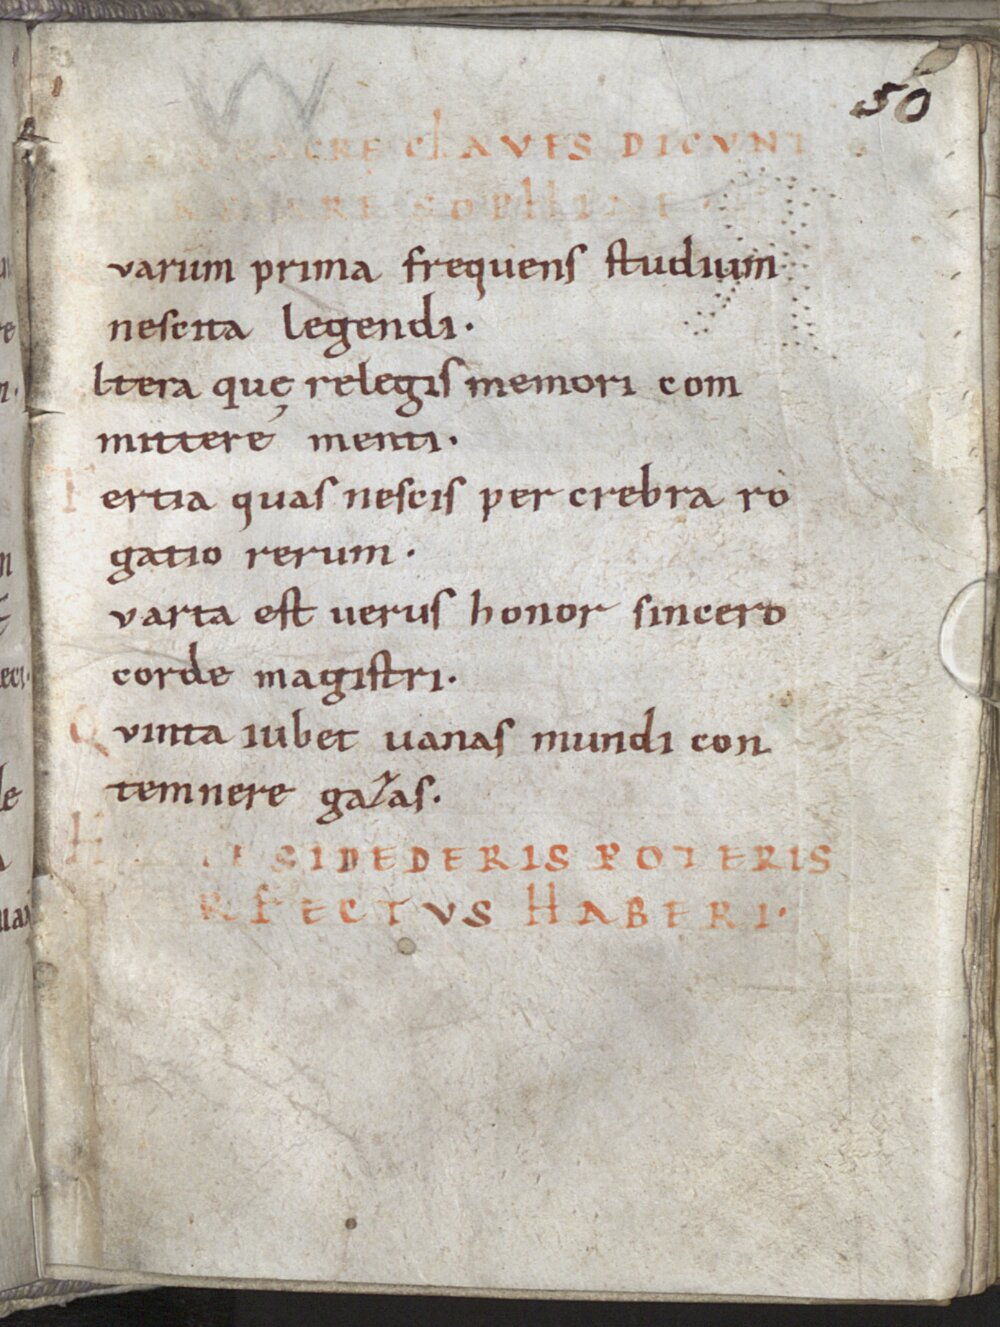 50
CLAVES DICVNT
SOPHI
varum prima frequens studium
nescita legendi.
ltera quę relegis memori com
mittere menti.
Tertia quas nescis per crebra ro
gatio rerum.
varta est uerus honor sincero
corde magistri.
Qvinta iubet uanas mundi con
temnere gazas.
SI DEDERIS POTERIS
RFECTVS HABERI.